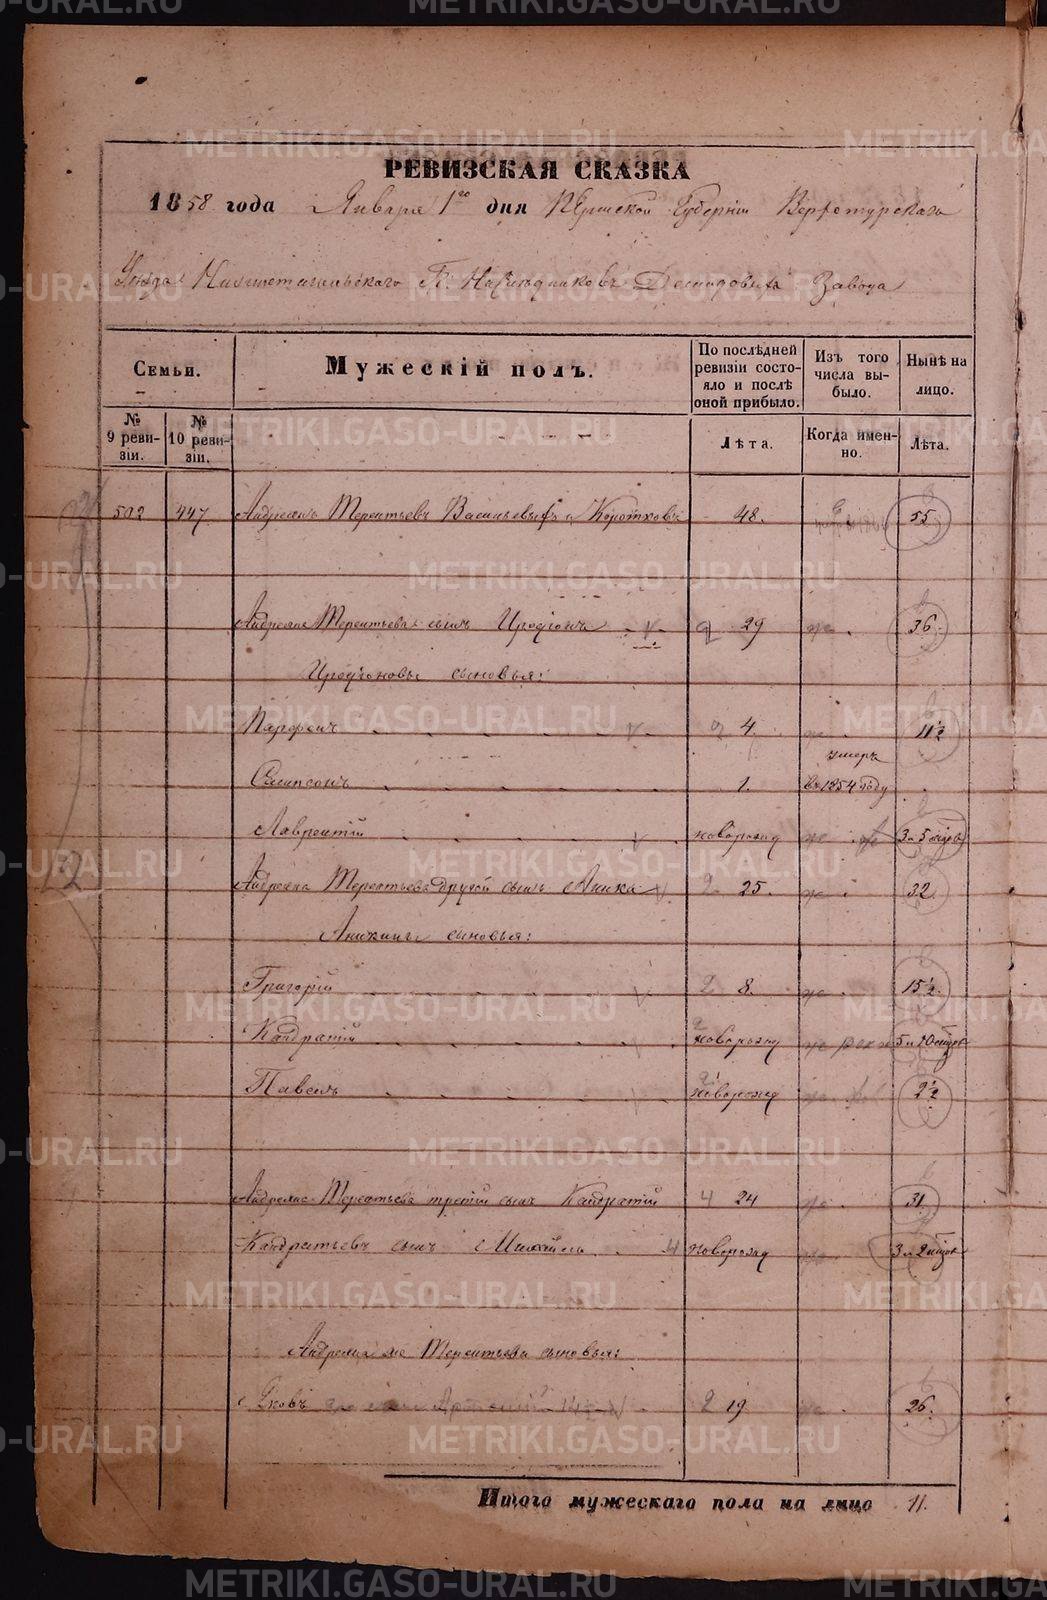 РЕВИЗСКАЯ СКАЗКА
1858 года Января 1го дня Пермской Губернии Верхотурскаго
Уезда Нижнетагильскаго Г. Наследниковъ Демидовыхъ Завода
Семьи.
Мужескій полъ.
По послѣдней ревизіи состояло и послѣ оной прибыло.
Изъ того числа выбыло.
Нынѣ на лицо.
№ 9 ревизіи.
№ 10 ревизіи.
Лѣта.
Когда именно.
Лѣта.
502 447 Андреянъ Терентьевъ Васильевыхъ и Коротковъ 48. 55
Андреяна Терентьева сынъ Иродіонъ 29 36.
Иродіоновы сыновья:
Парфенъ 4. 11½
Сампсонъ 1. умеръ въ 1854 году
Лаврентій новорожд 3 и 5 мцов
Андреяна Терентьева другой сынъ Аника 25. 32.
Аникины сыновья:
Григорій 8. 15½.
Кандратій новорожд 5 и 10 мцов
Павелъ новорожд 2½
Андреяна Терентьева третій сынъ Кандратій 24 31.
Кандратьевъ сынъ Михаилъ новорожд 3 и 2 мцов
Андреяна же Терентьева сыновья:
Яковъ 19 26.
Итого мужескаго пола на лицо 11.
METRIKI.GASO-URAL.RU